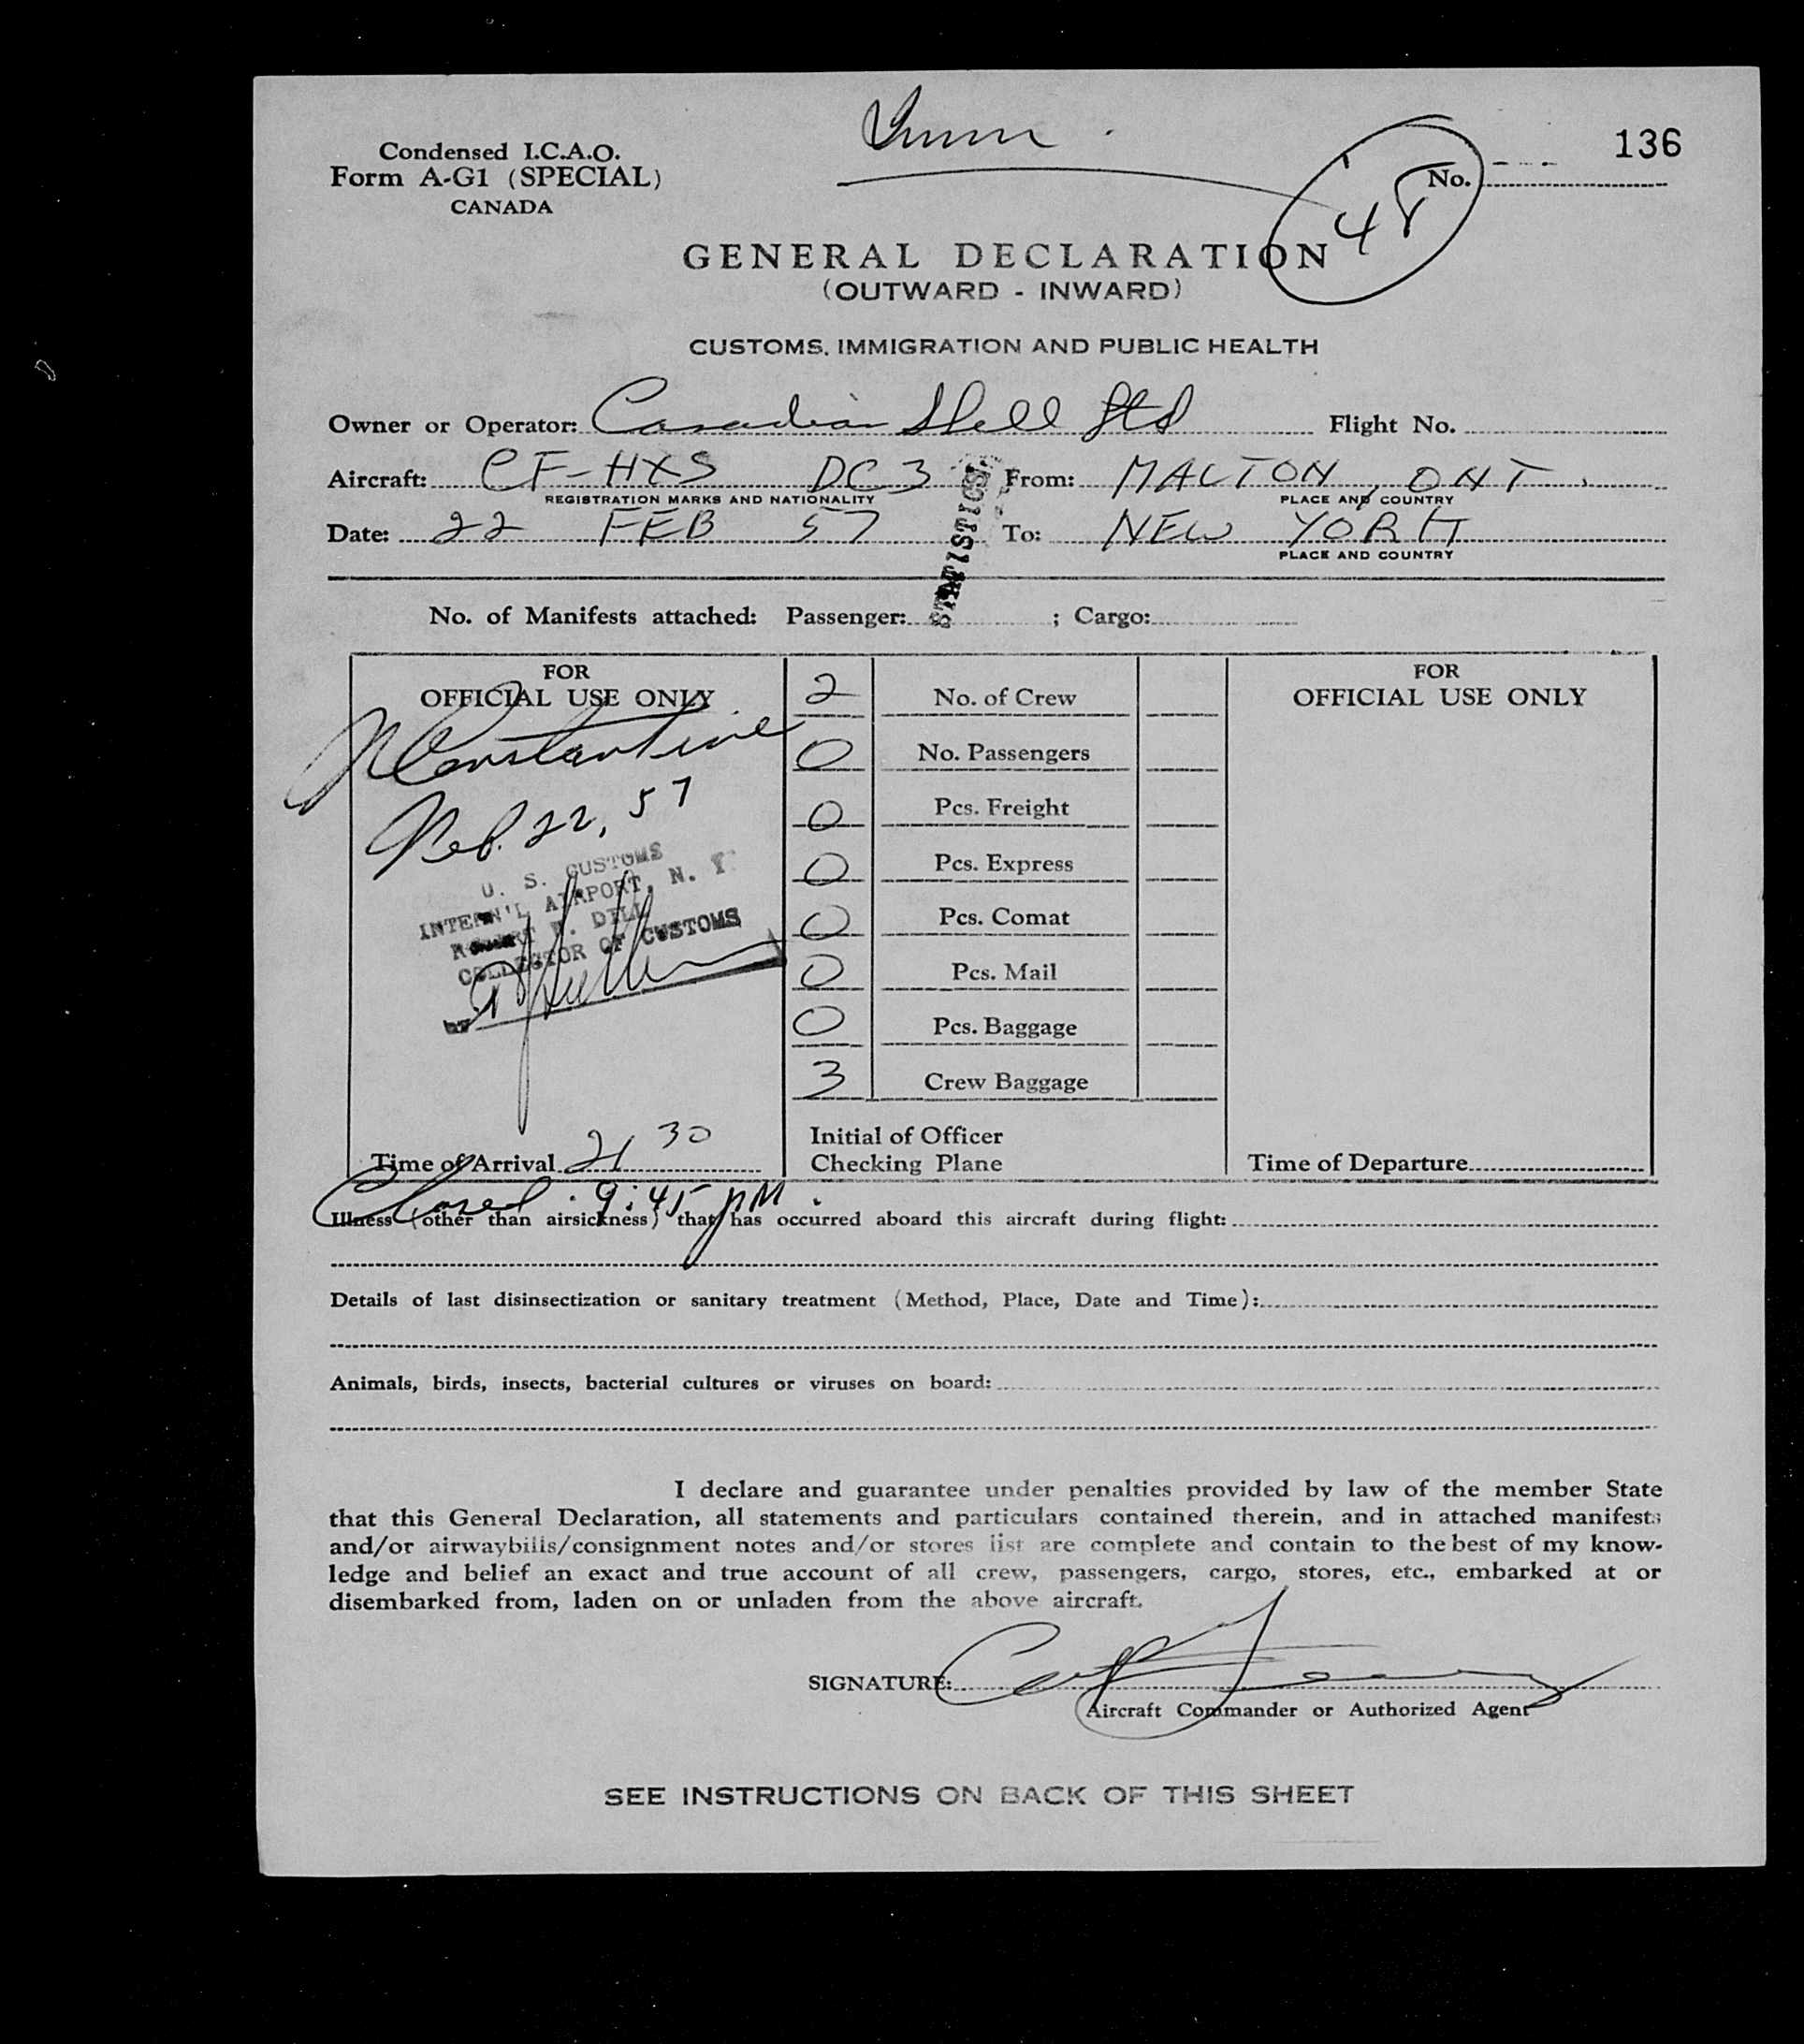 Condensed I.C.A.O.
Form A-G1 (SPECIAL)
CANADA
136
No.
48
GENERAL DECLARATION
(OUTWARD - INWARD)
CUSTOMS, IMMIGRATION AND PUBLIC HEALTH
Owner or Operator: Canadian Shell Ltd Flight No.
Aircraft: CF-HXS DC3 From: MALTON, ONT.
REGISTRATION MARKS AND NATIONALITY PLACE AND COUNTRY
Date: 22 FEB 57 To: NEW YORK
PLACE AND COUNTRY
STATISTICS
No. of Manifests attached: Passenger: ; Cargo:
FOR
OFFICIAL USE ONLY
Constantine
Feb. 22, 57
U. S. CUSTOMS
INTERN'L AIRPORT, N. Y.
ROBERT W. DILL
COLLECTOR OF CUSTOMS
BY
Time of Arrival 21 30
2 No. of Crew
0 No. Passengers
0 Pcs. Freight
0 Pcs. Express
0 Pcs. Comat
0 Pcs. Mail
0 Pcs. Baggage
3 Crew Baggage
Initial of Officer
Checking Plane
FOR
OFFICIAL USE ONLY
Time of Departure
Closed. 9:45 PM.
Illness (other than airsickness) that has occurred aboard this aircraft during flight:
Details of last disinsectization or sanitary treatment (Method, Place, Date and Time):
Animals, birds, insects, bacterial cultures or viruses on board:
I declare and guarantee under penalties provided by law of the member State
that this General Declaration, all statements and particulars contained therein, and in attached manifests
and/or airwaybills/consignment notes and/or stores list are complete and contain to the best of my know-
ledge and belief an exact and true account of all crew, passengers, cargo, stores, etc., embarked at or
disembarked from, laden on or unladen from the above aircraft.
SIGNATURE:
Aircraft Commander or Authorized Agent
SEE INSTRUCTIONS ON BACK OF THIS SHEET